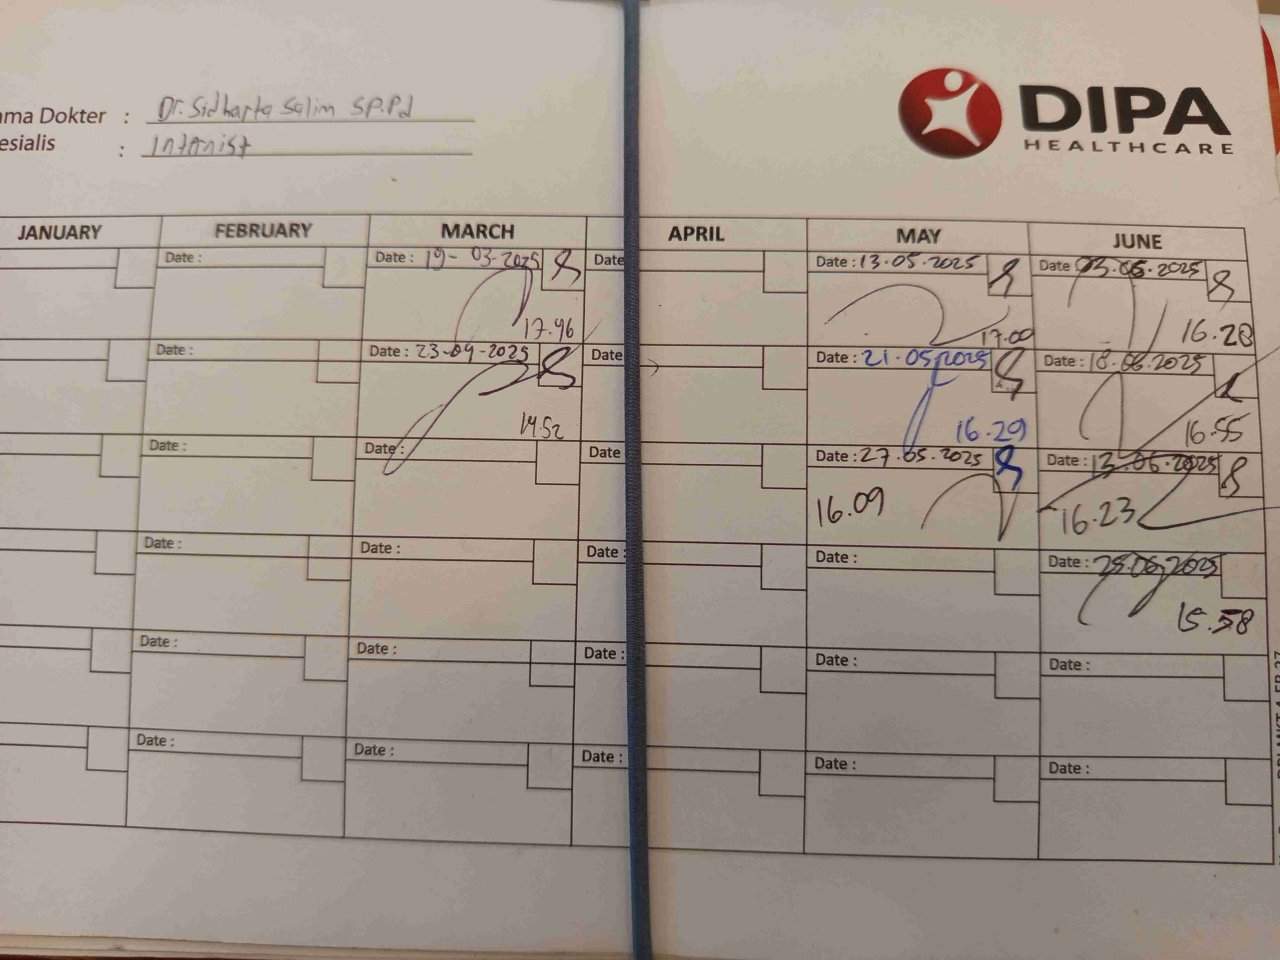 ama Dokter : Dr. Sidharta Salim SP.Pd
esialis : Intanist
DIPA
HEALTHCARE
JANUARY FEBRUARY MARCH APRIL MAY JUNE
Date : Date : 19-03-2025 Date Date : 13.05.2025 Date 03.06.2025
17.46 17.00 16.20
Date : Date : 23-04-2025 Date Date : 21.05.2025 Date : 18.06.2025
14.52 16.29 16.55
Date : Date : Date Date : 27.05.2025 Date : 13.06.2025
16.09 16.23
Date : Date : Date : Date : Date : 25.06.2025
15.58
Date : Date : Date : Date : Date :
Date : Date : Date : Date : Date :